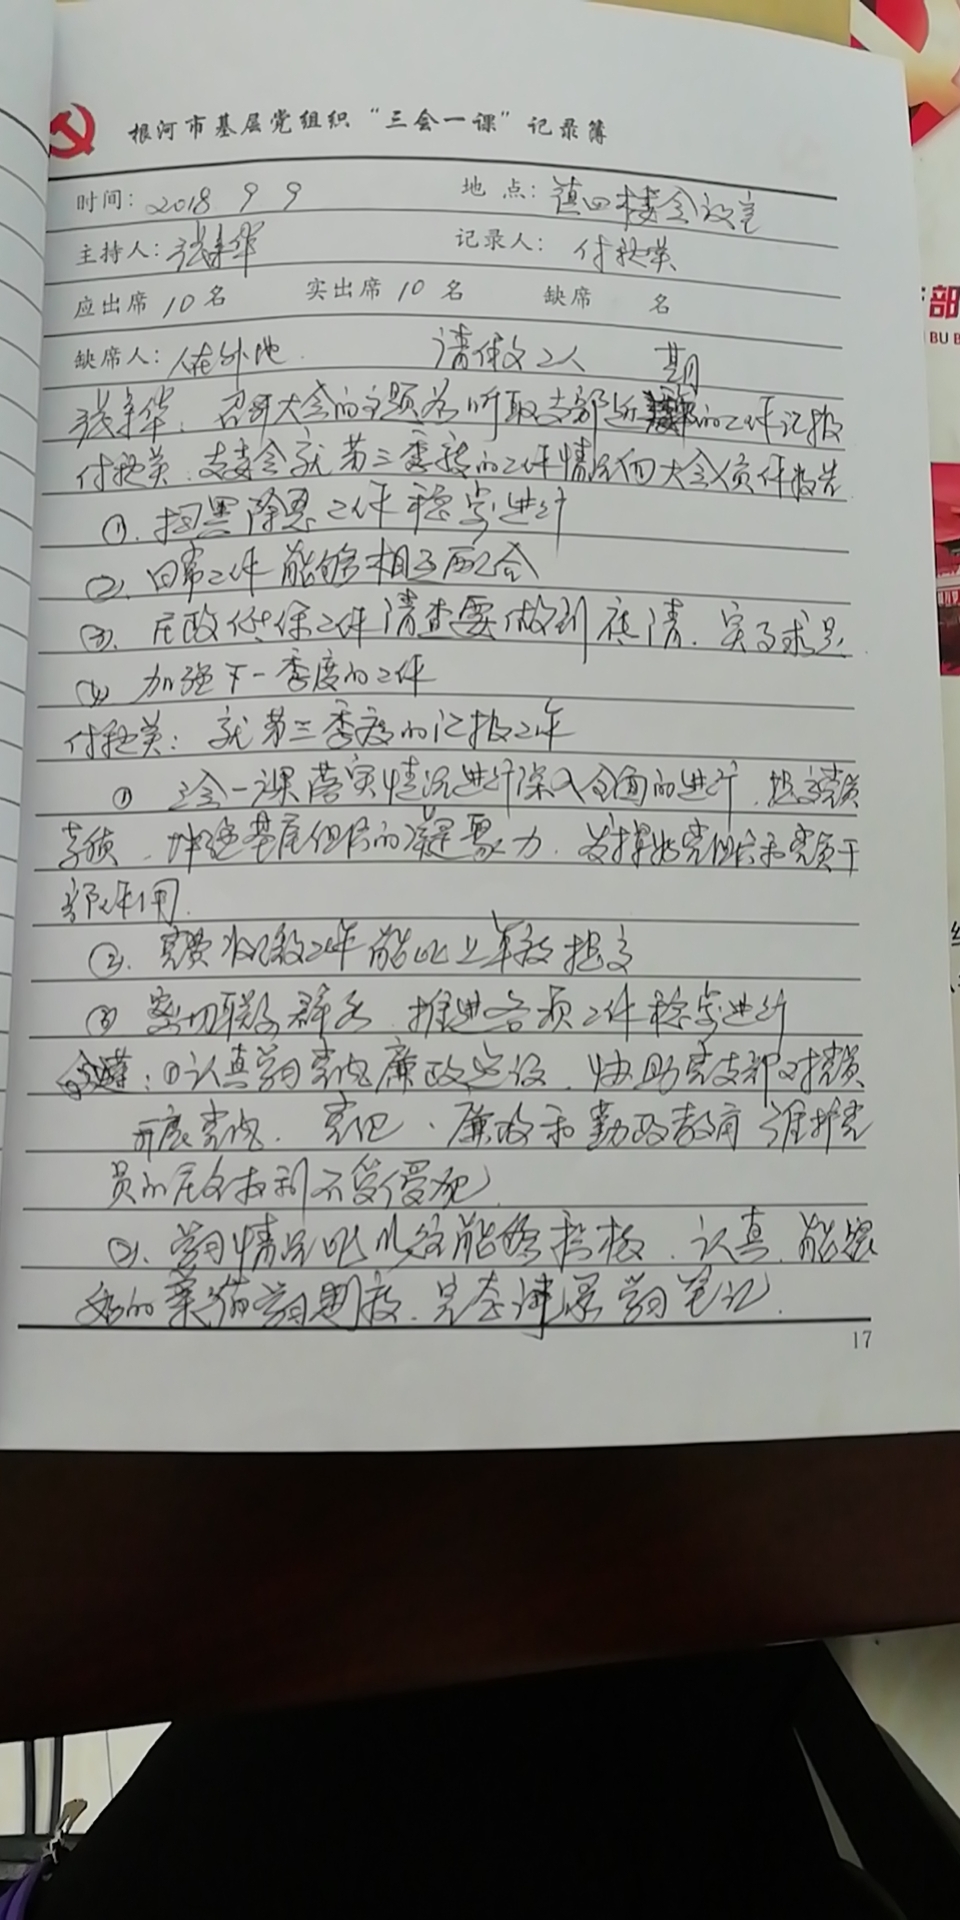 根河市基层党组织“三会一课”记录簿
时间: 2018 9 9 地点: 镇四楼会议室
主持人: 张 华 记录人: 付艳英
应出席 10 名 实出席 10 名 缺席 名
缺席人: 人在外地. 请假 2人
期
张 华: 召开大会的主题为听取支部近 的工作汇报
付艳英. 支委会就第三季度的工作情况向大会 作报告
①. 扫黑除恶工作稳定进行
②. 日常工作能够相互配合
③. 民政低保工作清查要做到 清. 实事求是.
④ 加强下一季度的工作
付艳英: 就第三季度的汇报工作
① 三会一课落实情况进行深入全面的进行. 提高党员
素质. 基层组织的凝聚力. 发挥好党组织和党员干
部作用.
②. 党费收缴工作能比上年 提高
③ 密切联系群众. 推进各项工作稳定进行
: ①认真学习党内廉政建设. 协助党支部对党员
开展党内. 党纪. 廉政和勤政教育 维护党
员的民主权利不受侵犯.
②. 学习情况 能够积极. 认真. 能
好的 学习 . 完 学习笔记.
17
部
BU B